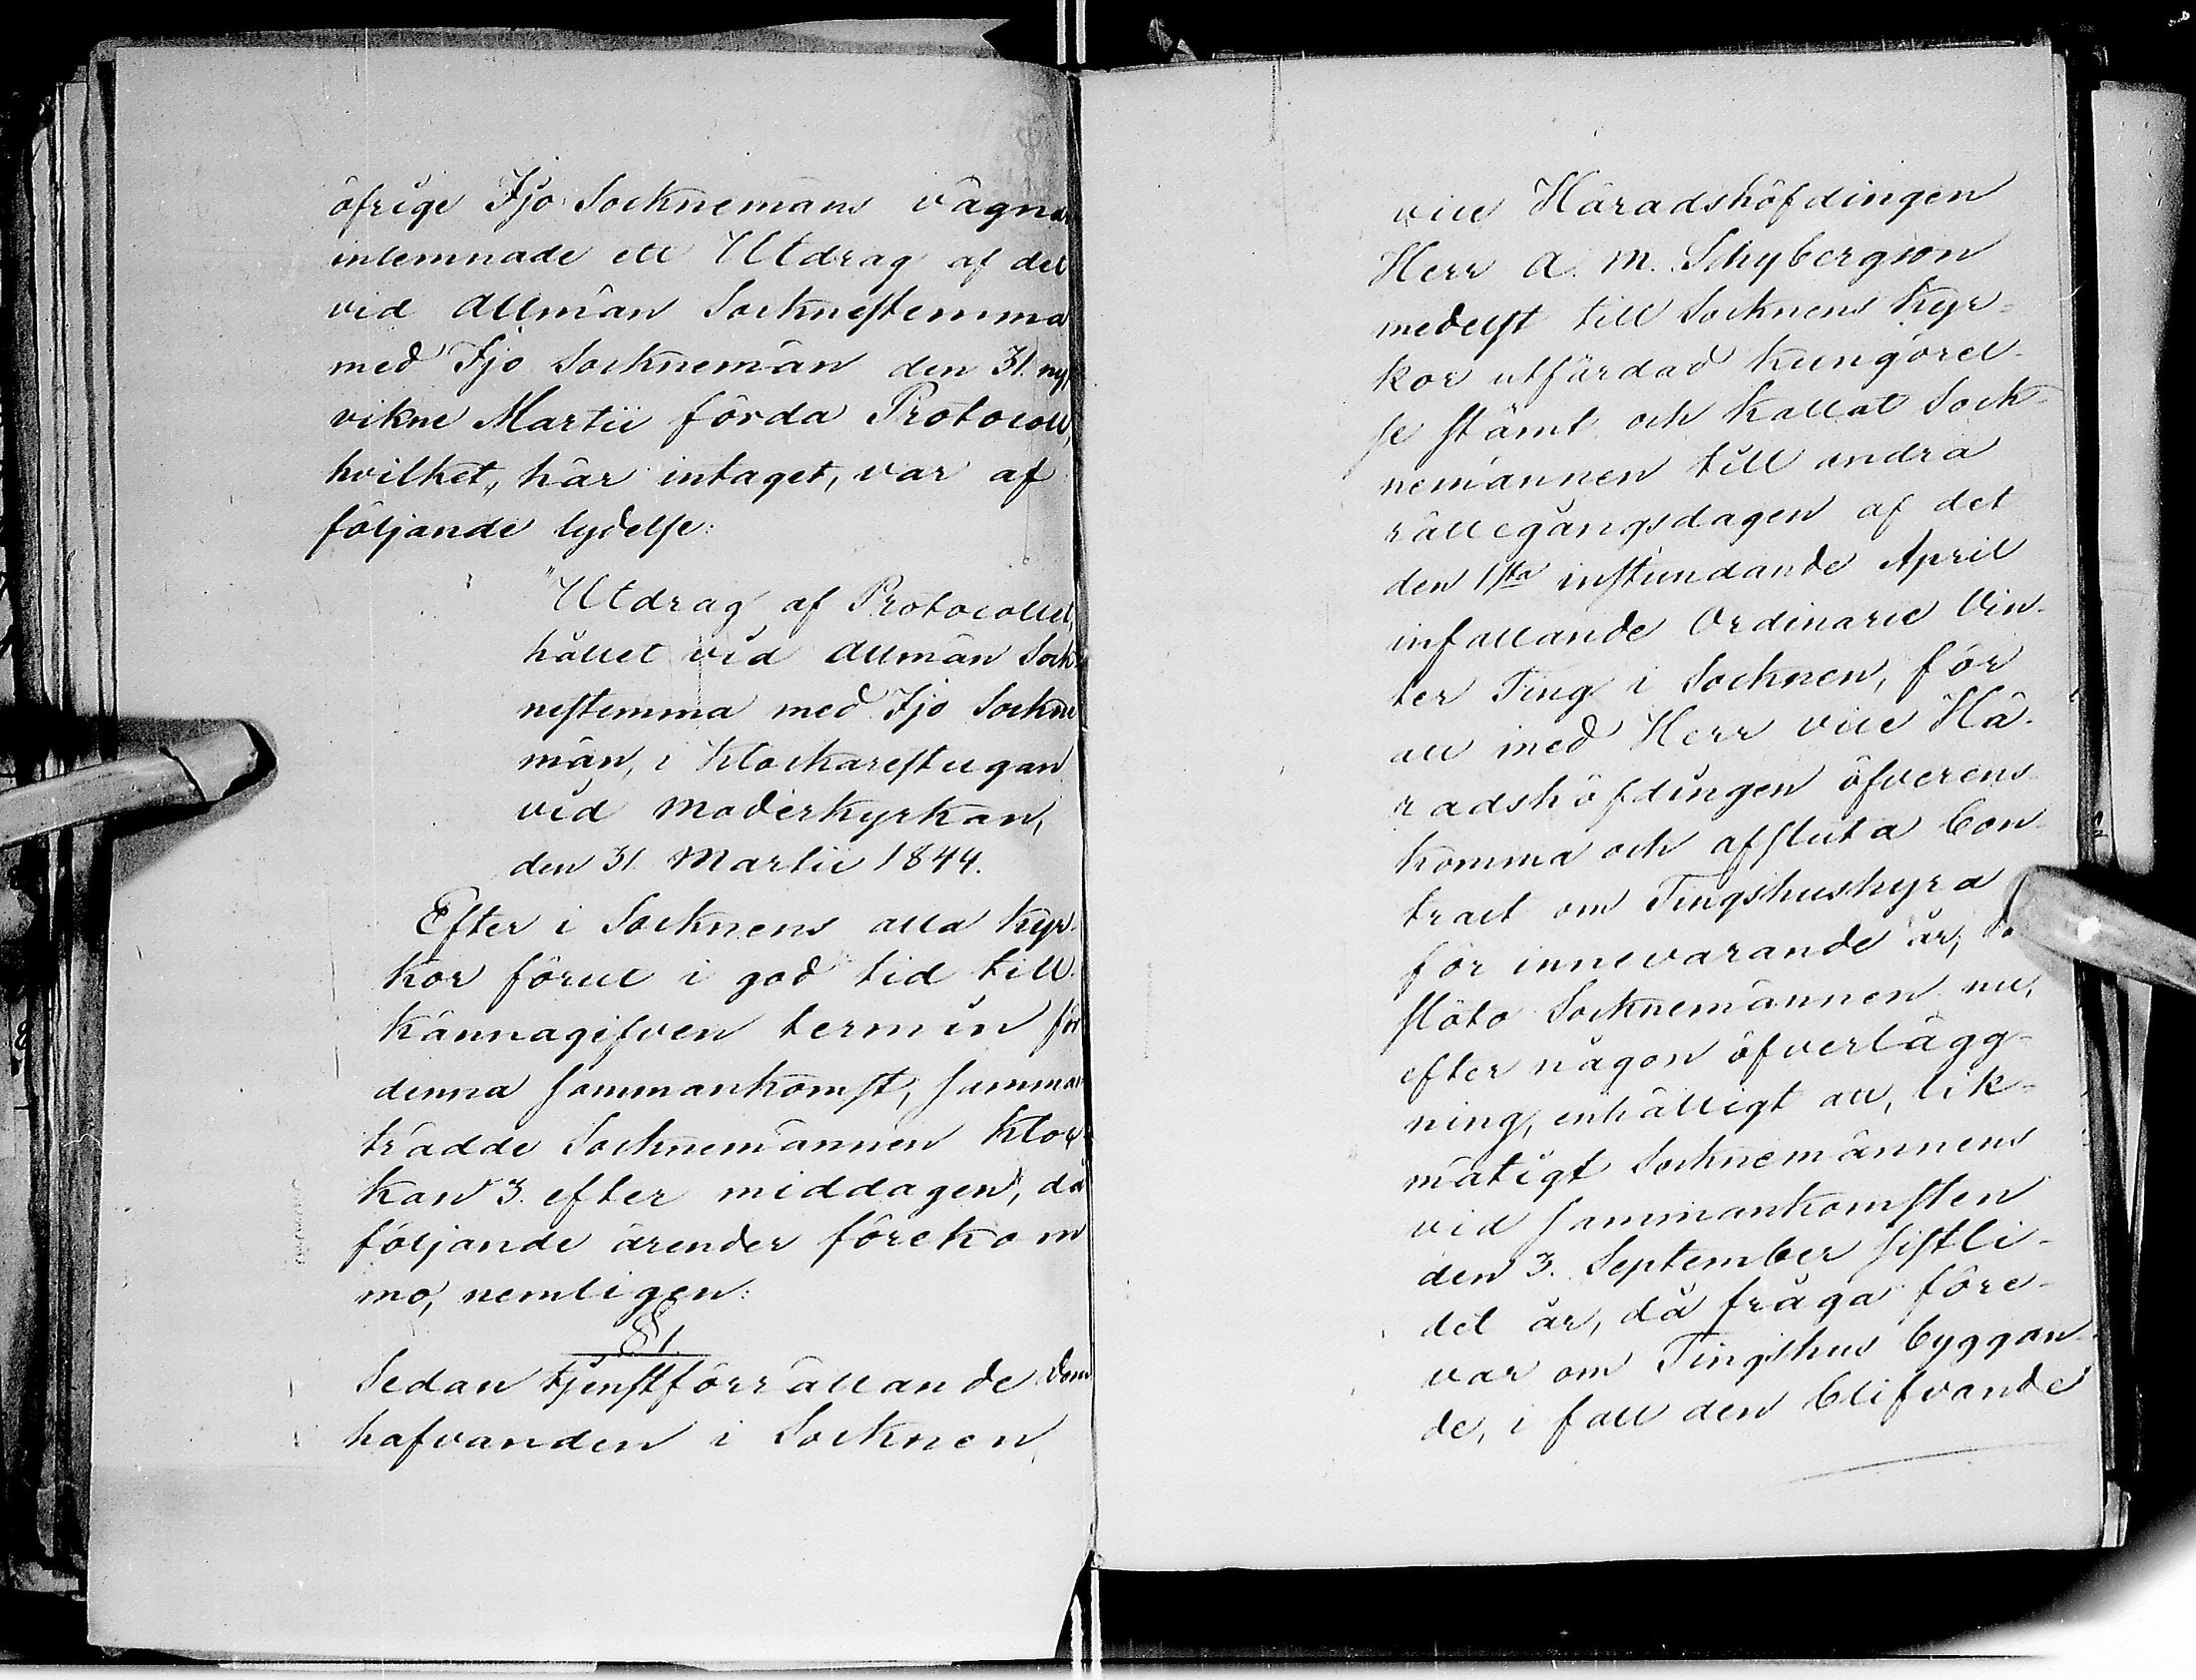 öfrige Ijo Socknemäns vägna
inlemnade ett Utdrag af det
vid Allmän Socknestemma
med Ijo Socknemän den 31. ny
vikne Martii förda Protocoll,
hvilket, här intaget, var af
följande lydelse:
"Utdrag af Protocollet,
hållet vid Allmän Sock
nestemma med Ijo Sockne
män, i Klockarestugan
vid Moderkyrkan,
den 31. Martii 1844.
Efter i Socknens alla Kyr-
kor förut i god tid till
kännagifven termin för
denna sammankomst, samman
trädde Socknemännen Kloc-
kan 3. efter middagen, då
följande ärender förekom
mo, nemligen:
§ 1.
Sedan tjenstförrättande Dom
hafvanden i Socknen,
vice Häradshöfdingen
Herr A. M. Schybergson
medelst till Socknens Kyr-
kor utfärdad kungörel-
se stämt och kallat Sock-
nemännen till andra
rättegångsdagen af det
den 1sta instundande April
infallande Ordinarie Vin-
ter Ting i Socknen, för
att med Herr vice Hä-
radshöfdingen öfverens
komma och afsluta Con-
tract om Tingshushyra
för innevarande år,
slöto Socknemännen nu,
efter någon öfverlägg-
ning, enhälligt att, lik-
mätigt Socknemännens
vid sammankomsten
den 3. September sistli-
det år, då fråga före-
var om Tingshus byggan-
de, i fall den blifvande